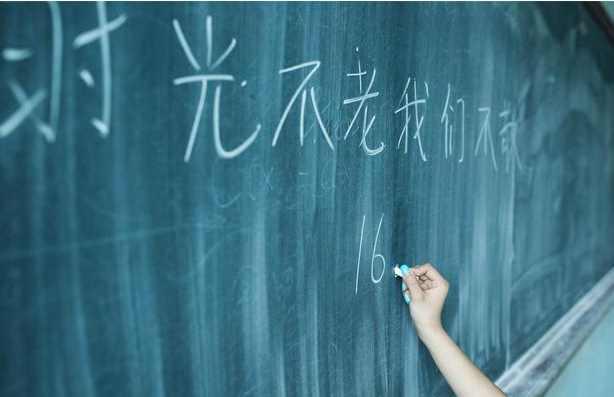 对时光不老我们不散
16